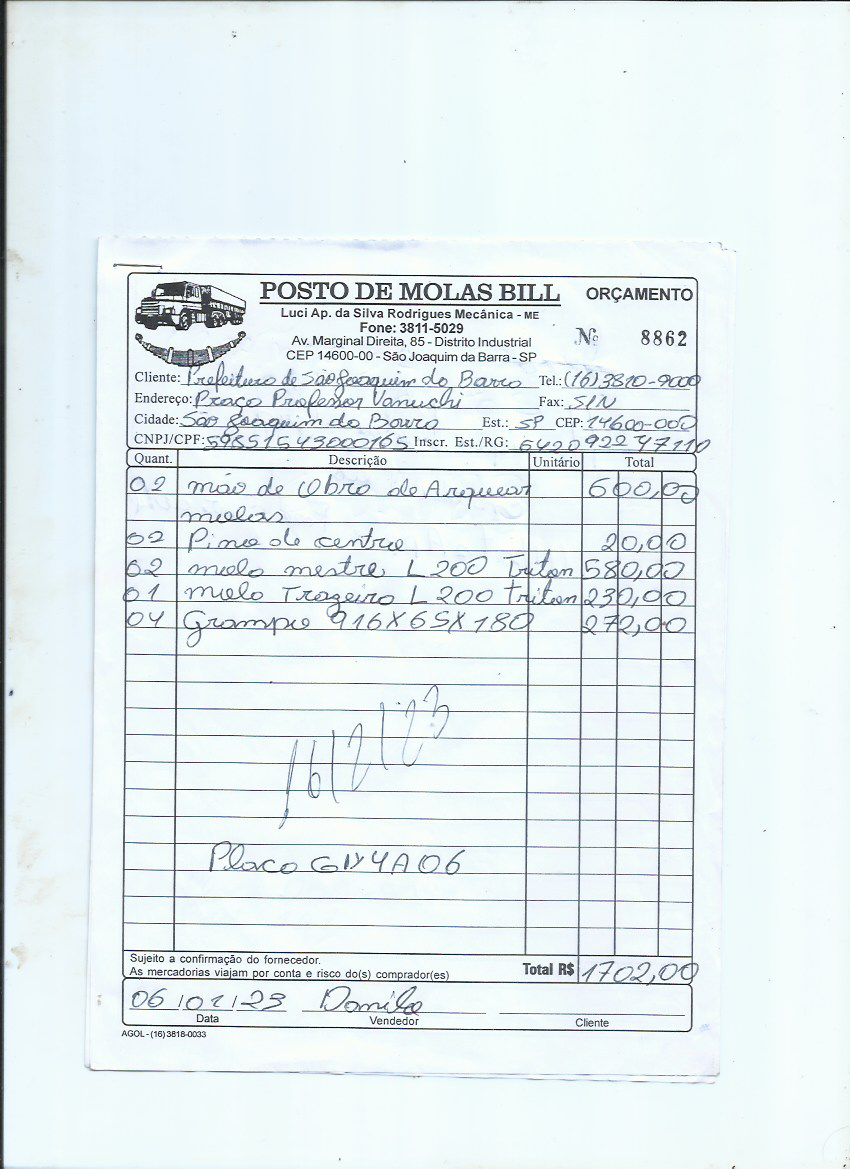 POSTO DE MOLAS BILL
ORÇAMENTO
Luci Ap. da Silva Rodrigues Mecânica - ME
Fone: 3811-5029
Nº 8862
Av. Marginal Direita, 85 - Distrito Industrial
CEP 14600-00 - São Joaquim da Barra - SP
Cliente: Prefeitura de São Joaquim da Barra Tel.: (16) 3810-9000
Endereço: Praça Professor Vanuchi Fax: S/N
Cidade: São Joaquim da Barra Est.: SP CEP: 14600-000
CNPJ/CPF: 59851543000165 Inscr. Est./RG: 642092247110
Quant. Descrição Unitário Total
02 mão de Obra de Arquear 600,00
molas
02 Pino de centro 20,00
02 mola mestre L 200 Triton 580,00
01 mola Trazeira L 200 triton 230,00
04 Grampo 916X65X180 272,00
16/2/23
Placa 4A06
Sujeito a confirmação do fornecedor.
As mercadorias viajam por conta e risco do(s) comprador(es)
Total R$ 1702,00
06 / 02 / 23 Danilo
Data Vendedor Cliente
AGOL - (16) 3818-0033